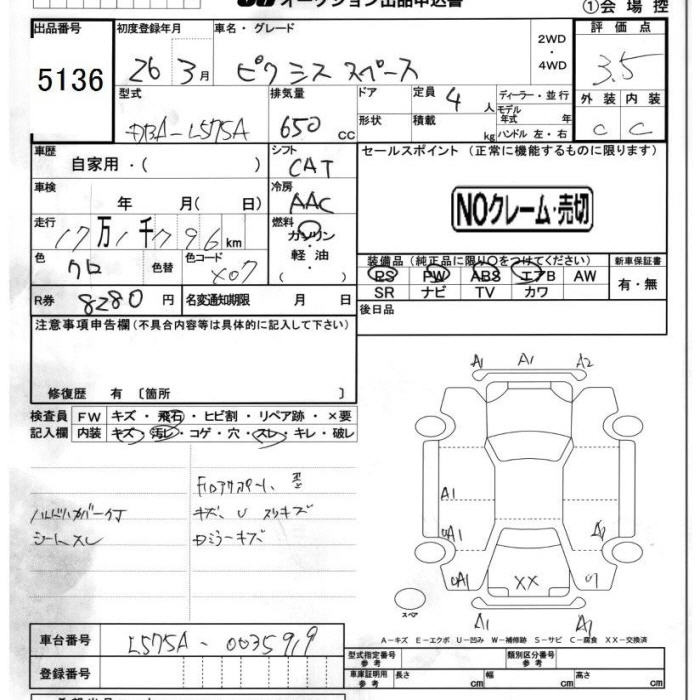 オークション出品申込書
①会場控
出品番号 5136
初度登録年月 26 3月
車名・グレード ピクシス スペース
2WD・4WD
評価点 3.5
外装 C 内装 C
型式 DBA-L575A
排気量 650 CC
ドア
形状
定員 4 人
積載 kg
ディーラー・並行
モデル年式 年
ハンドル 左・右
車歴 自家用・( )
シフト CAT
セールスポイント (正常に機能するものに限ります)
車検 年 月( 日)
冷房 AAC
NOクレーム・売切
走行 17万1千796km
燃料 ガソリン・軽油・( )
色 クロ 色替
色コード X07
装備品(純正品に限り○をつけてください)
PS PW ABS エアB AW
SR ナビ TV カワ
新車保証書 有・無
R券 8280円
名変通知期限 月 日
後日品
注意事項申告欄(不具合内容等は具体的に記入して下さい)
修復歴 有 〔箇所 〕
検査員記入欄
FW キズ・飛石・ヒビ割・リペア跡・×要
内装 キズ・汚レ・コゲ・穴・スレ・キレ・破レ
シートスレ
キズ、U スリキズ
Dミラーキズ
A1 A1 A2
A1
UA1
UA1
XX
スペア
A-キズ E-エクボ U-凹み W-補修跡 S-サビ C-腐食 XX-交換済
車台番号 L575A-0035919
型式指定番号 参考
類別区分番号 参考
登録番号
車庫証明 参考 長さ cm 幅 cm 高さ cm